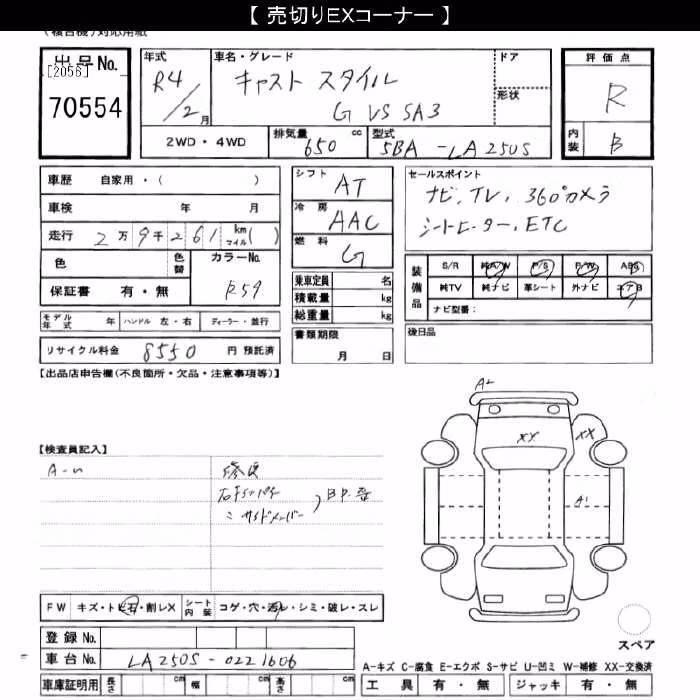 【 売切りEXコーナー 】
(複合機)対応用紙
出品No.
[2056]
70554
年式
R4/2月
車名・グレード
キャスト スタイル
G VS SA3
ドア
形状
評価点
R
内装
B
2WD・4WD
排気量 650 cc
型式 5BA-LA250S
車歴 自家用・( )
車検 年 月
走行 2万9千261 km マイル( )
色
色替
カラーNo. R59
保証書 有・無
モデル年式 年 ハンドル 左・右 ディーラー・並行
リサイクル料金 8550 円 預託済
シフト AT
冷房 AAC
燃料 G
乗車定員 名
積載量 kg
総重量 kg
書類期限
月 日
セールスポイント
ナビ, TV, 360°カメラ
シートヒーター, ETC
装備品
S/R 純A/W P/S P/W ABS
純TV 純ナビ 革シート 外ナビ エアB
ナビ型番:
後日品
【出品店申告欄(不良箇所・欠品・注意事項等)】
【検査員記入】
A-U
修復
右Fインパネ
〃 サイドメンバー
BP.歪
A2
XX
XX
A1
FW キズ・トビ石・割レX
シート内装 コゲ・穴・汚レ・シミ・破レ・スレ
登録No.
車台No. LA250S-0221606
車庫証明用 長さ cm 幅 cm 高さ cm
スペア
A-キズ C-腐食 E-エクボ S-サビ U-凹ミ W-補修 XX-交換済
工具 有・無 ジャッキ 有・無